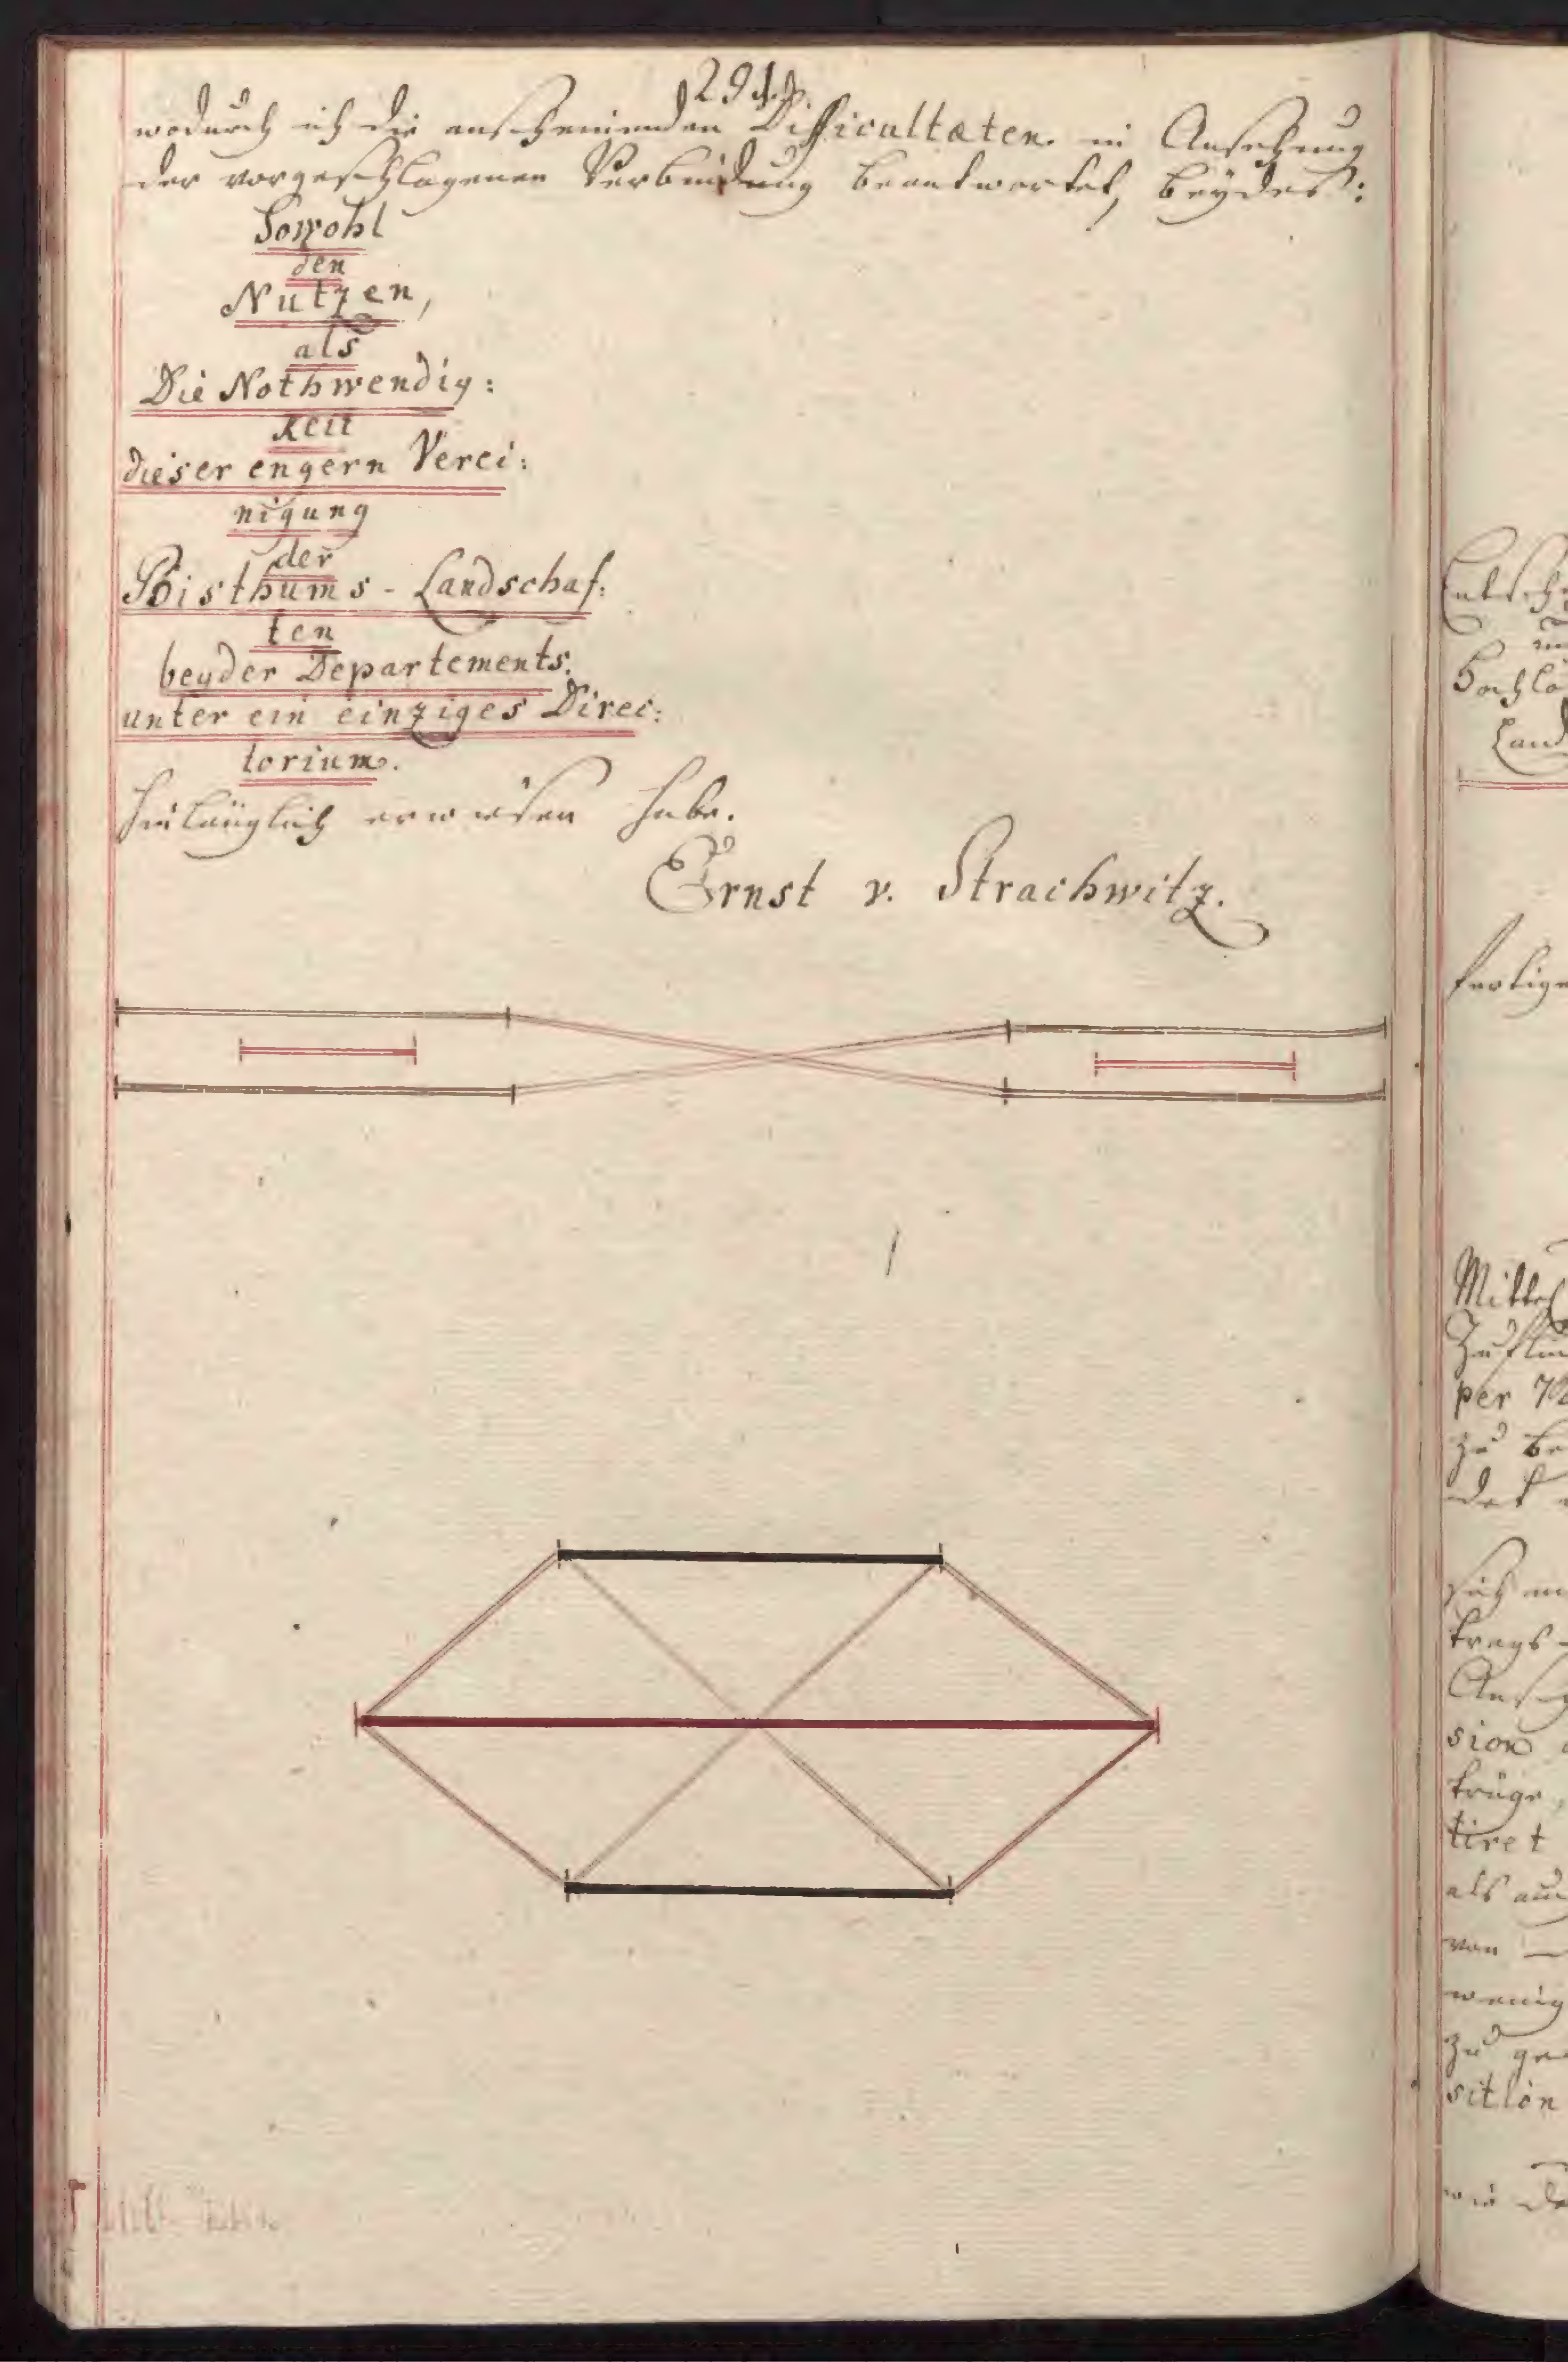 294.
wodurch ich die anscheinenden Difficultæten in Ansehung
der vorgeschlagenen Verbindung beantwortet, beydes:
Sowohl
den
Nutzen,
als
Die Nothwendig:
keit
dieser engern Verei:
nigung
der
Bisthums - Landschaf:
ten
beyder Departements.
unter ein einziges Direc:
torium.
hinlänglich erwiesen habe.
Ernst v. Strachwitz.
Land
Mittel
per
zu be
det
sion
tiret
als
von
wenig
zu ge
sition